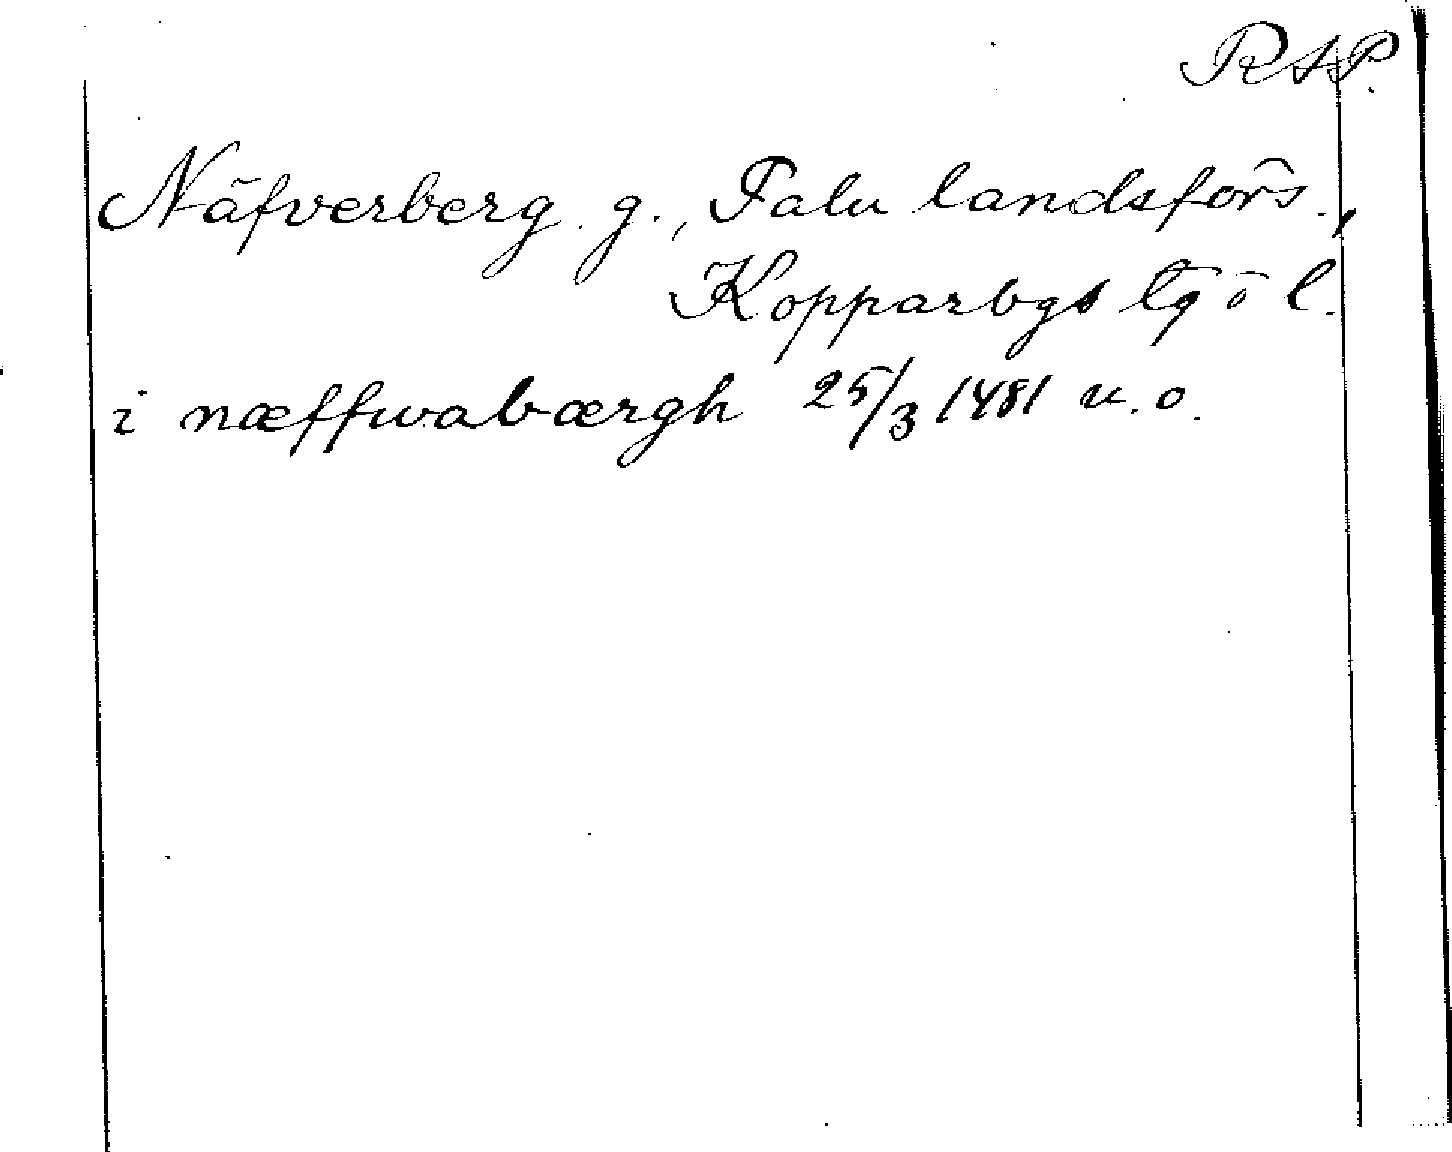 RAP.
Näfverberg g., Falu landsförs.,
Kopparbgs tg o l.
i næffwabærgh 25/3 1481 u.o.